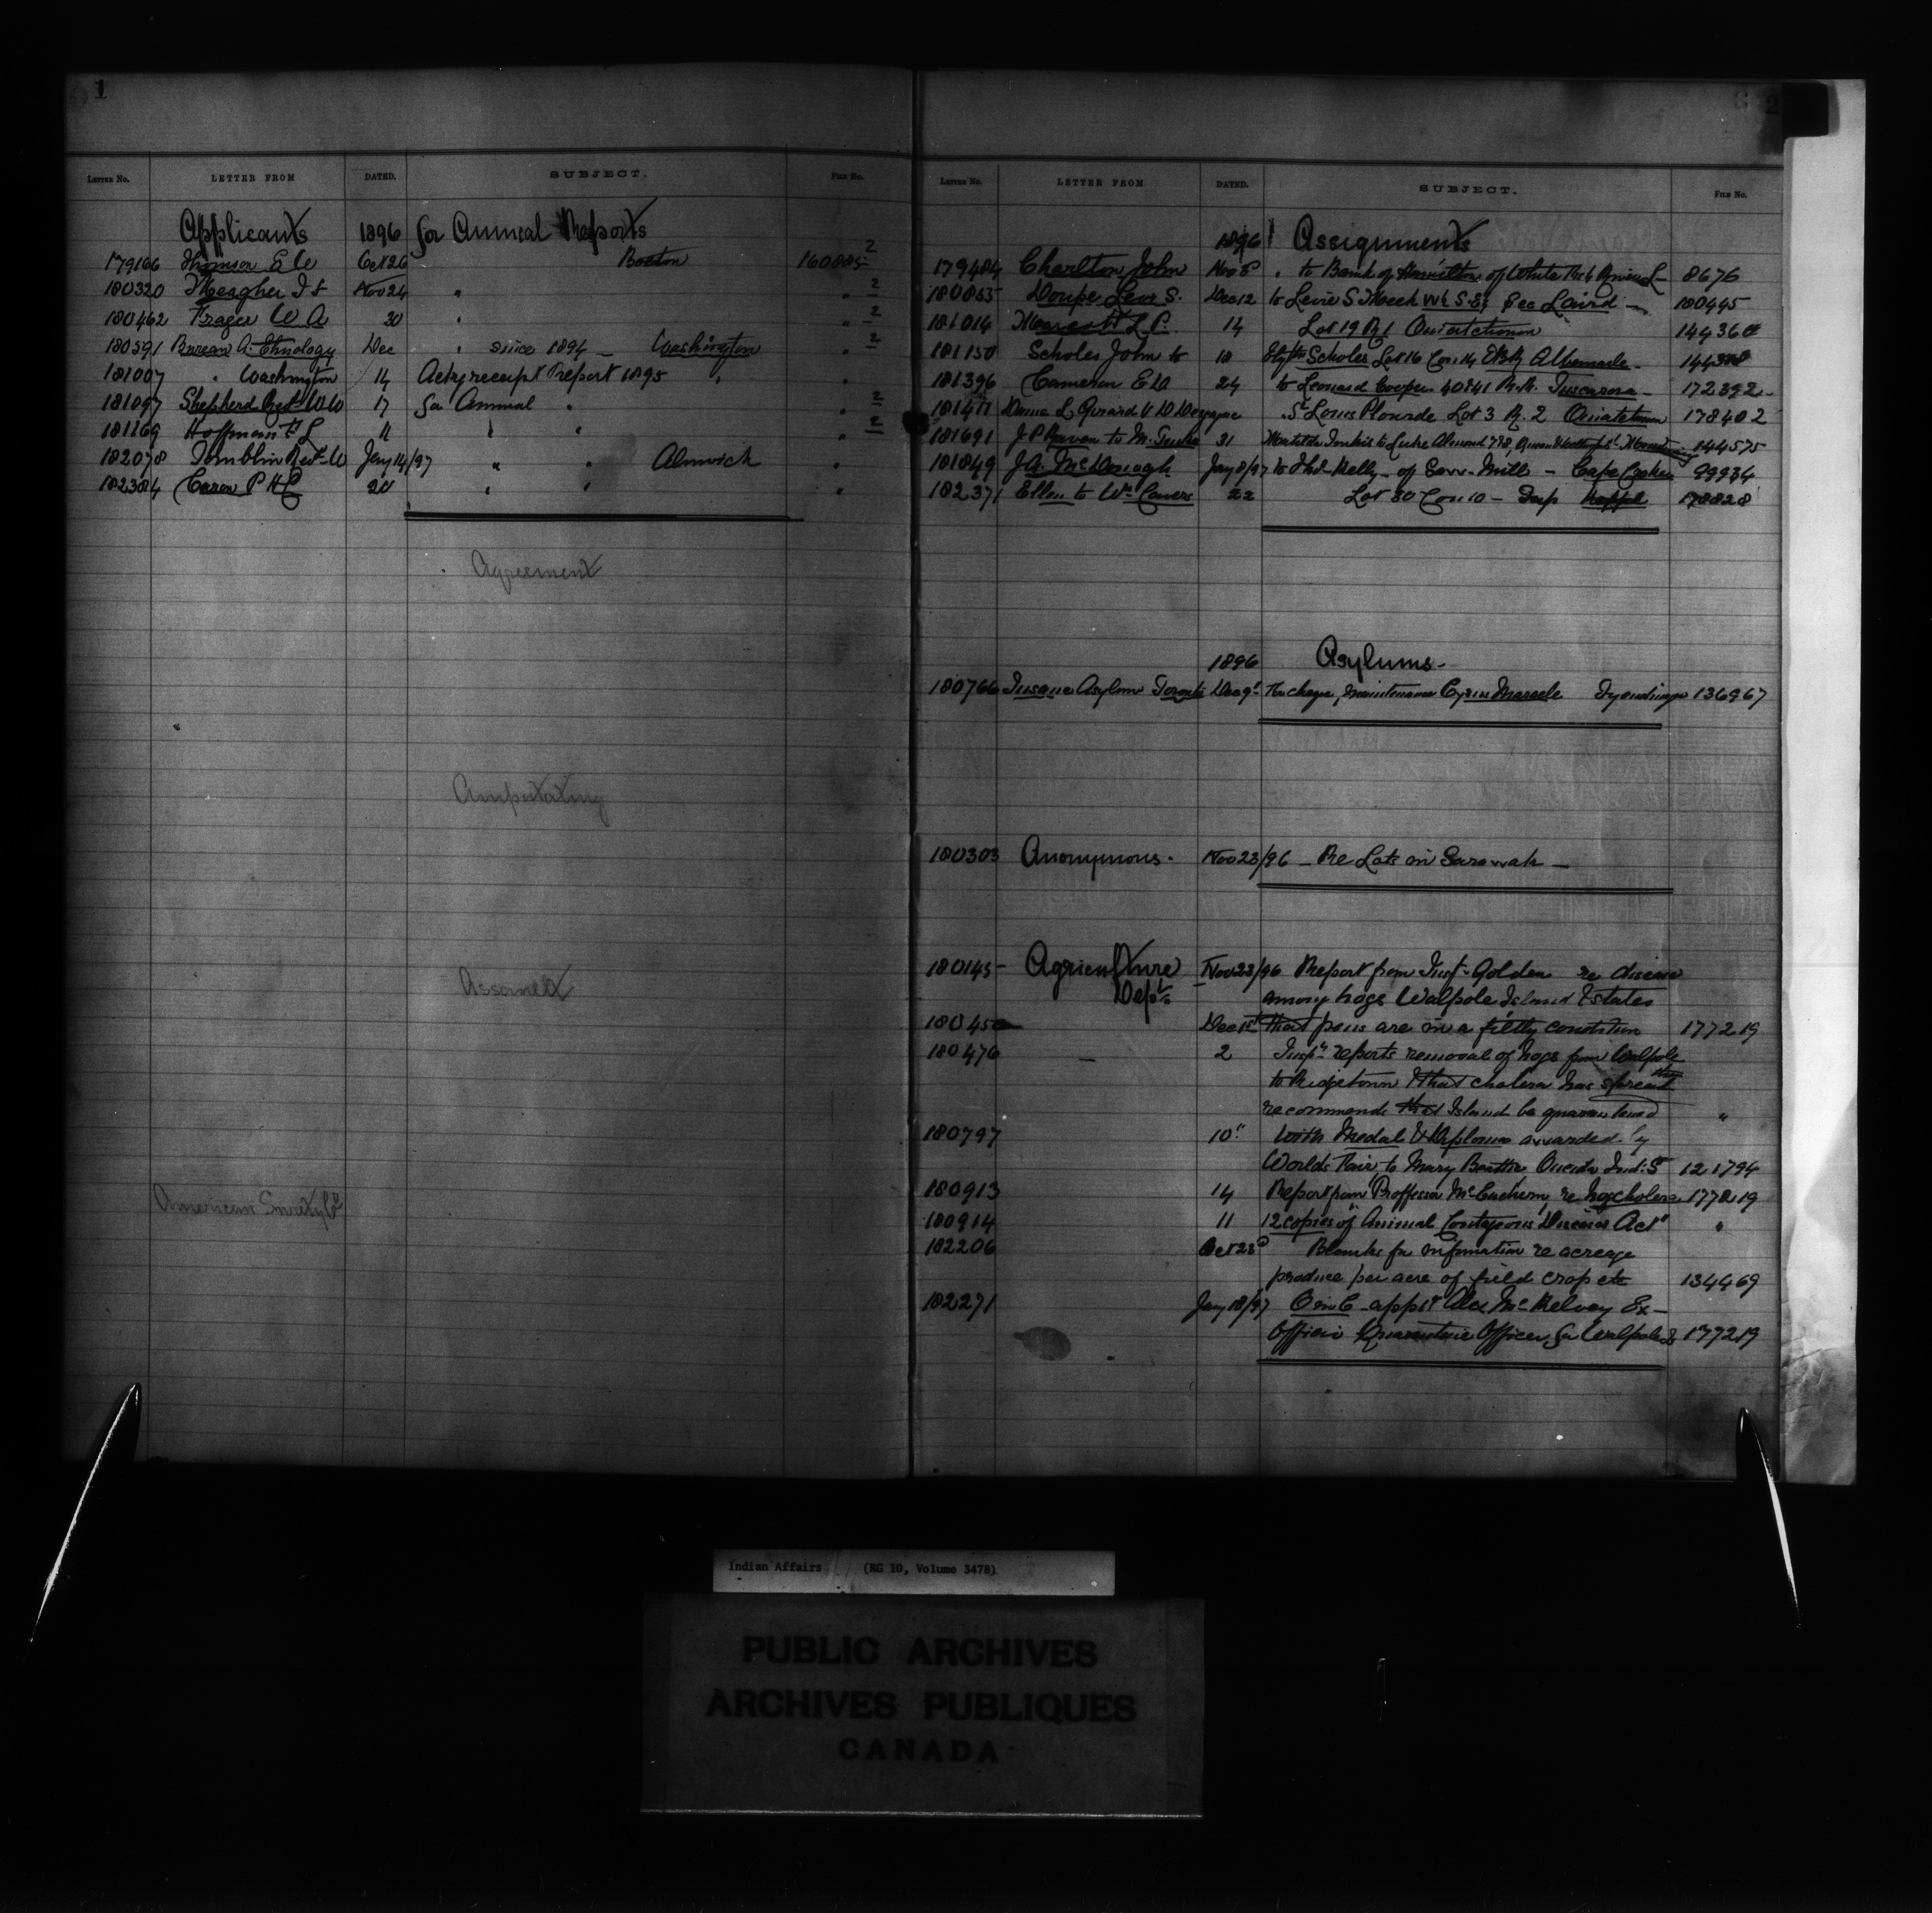 1
LETTER NO. LETTER FROM DATED. SUBJECT. FILE NO.
Applicants 1896 for Annual Reports
179166 Thomson E W Oct 26 Boston 160885-2
180320 Meagher Nov 24 " " 2
180462 Frazer W A 30 " " 2
180591 Bureau A. Ethnology Dec " since 1894 — Washington " 2
181007 " Washington 14 Ackg receipt Report 1895 " "
181097 Shepherd Revd W W 17 for Annual " " 2
181169 Hoffman F L " " " 2
182078 Tomblin Revd W Jany 14/97 " " Alnwick "
182384 Caron P H C 20 " " "
Agreement
Amputating
Assomell
American Surety Co
2
LETTER NO. LETTER FROM DATED. SUBJECT. FILE NO.
1896 Assignments
179484 Charlton John Nov 8 " to Bank of Hamilton of White 8676
180855 Doupe Levi S. Dec 12 to Levi S Meek W½ S.E¼ Sec Laird — 180445
181014 14 Lot 19 R 1 Ouiatchouan 144360
181150 Scholes John to 18 Scholes Lot 16 Con 14 EBR Albemarle - 144318
181396 Cameron E D 24 to Leonard Cooper 40 & 41 R.R. Tuscarora - 172392
181477 Dame L Girard V D St Louis Plourde Lot 3 R. 2 Ouiatchouan 178402
181691 J P Raven to M. 31 to Luke Almond 144575
181849 J A. McDonogh Jany 8/97 to Thos Kelly - of Saw-Mill - Cape Croker 99934
182371 Ellen to Wm 22 Lot 30 Con 10 - Keppel 178828
1896 Asylums -
180766 Insane Asylum Toronto Dec 9" maintenance Tyendinaga 136967
180303 Anonymous - Nov 23/96 - Re Lots in Sarawak -
180145 - Agriculture Nov 23/96 Report from Insp- Golden re disease
Dept among hogs Walpole Island & states
18045 Dec 1st that pens are in a filthy condition 177219
180476 — 2 Inspr reports removal of hogs from Walpole
to Ridgetown & that cholera has spread
recommends that Island be quarantined "
180797 10" With Medal & Diploma awarded by
Worlds Fair to Mary Beattie Oneida Ind: S 121794
180913 14 Report from Proffessor McEachern re hog cholera 177219
180914 11 12 copies of "Animal Contageous Diseases Act" "
182206 Oct 23d Blanks for information re acreage
produce per acre of field crop etc 134469
182271 Jany 18/97 O in C - apptg Alex McKelvey Ex-
Officio Quarantine Officer for Walpole Is 177219
Indian Affairs (RG 10, Volume 3478)
PUBLIC ARCHIVES
ARCHIVES PUBLIQUES
CANADA